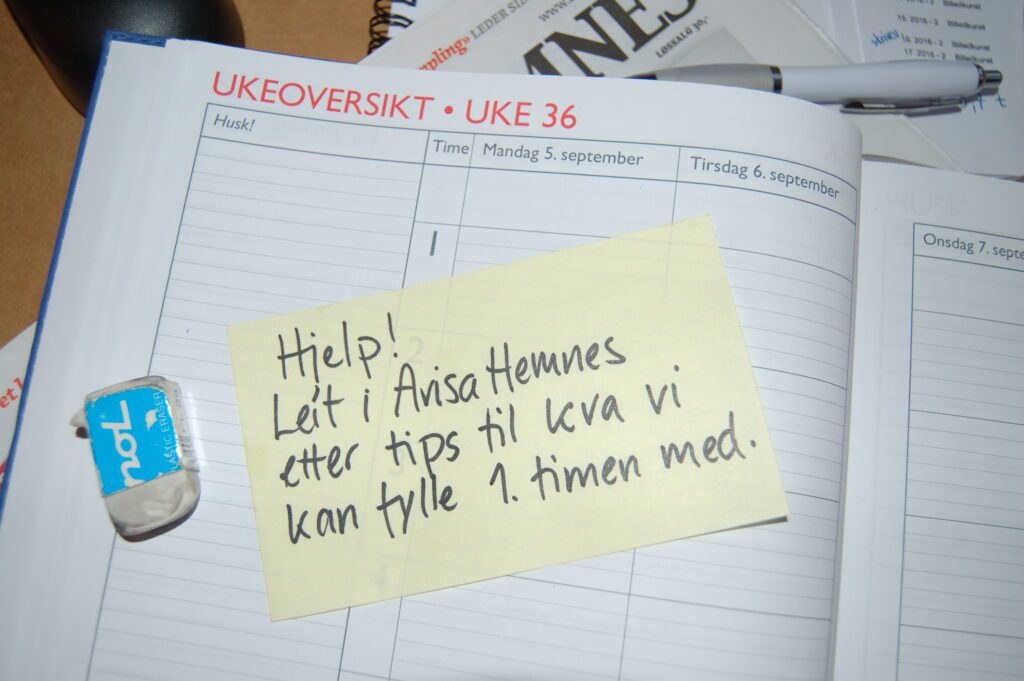 pling» LEDER SID
www.
MNES
LØSSALG 30,-
15 2016 - 2 Billedkunst
16 2016 - 2 Billedkunst
17 2016 - 2 Billedkunst
UKEOVERSIKT • UKE 36
Husk!
Time
Mandag 5. september
Tirsdag 6. september
HUSK
Onsdag 7. septe
1
2
Hjelp!
Leit i Avisa Hemnes
etter tips til kva vi
kan fylle 1. timen med.
4
et l
nOL
ASTIC ERASER